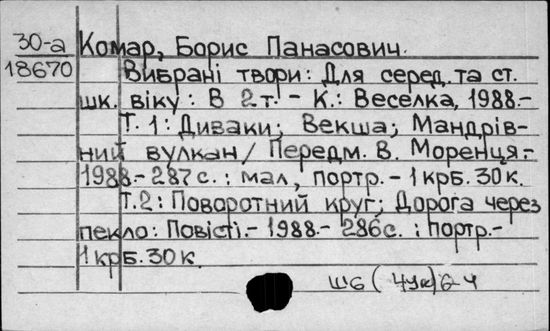 30-а Комар, Борис Панасович.
18670 Вибрані твори: Для серед. та ст.
шк. віку: В 2 т. - К.: Веселка, 1988.-
Т. 1: Диваки; Векша; Мандрів-
ний вулкан / Передм. В. Моренця.-
1988.- 287 с.: мал, портр.- 1 крб. 30 к.
Т.2: Поворотний круг; Дорога через
пекло: Повісті.- 1988.- 286 с.: портр.-
1 крб. 30 к.
Ш6(4Ук)6-4